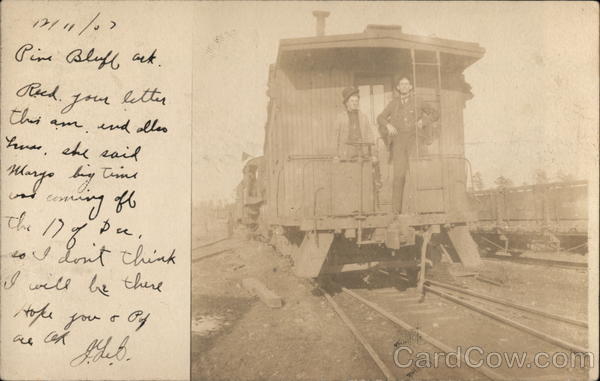 12/11/07
Pine Bluff Ark.
Recd. your letter
this am. and also
she said
Margs big time
was coming off
the 17 of Dec,
so I don't think
I will be there
Hope you & Pg
are OK
CardCow.com